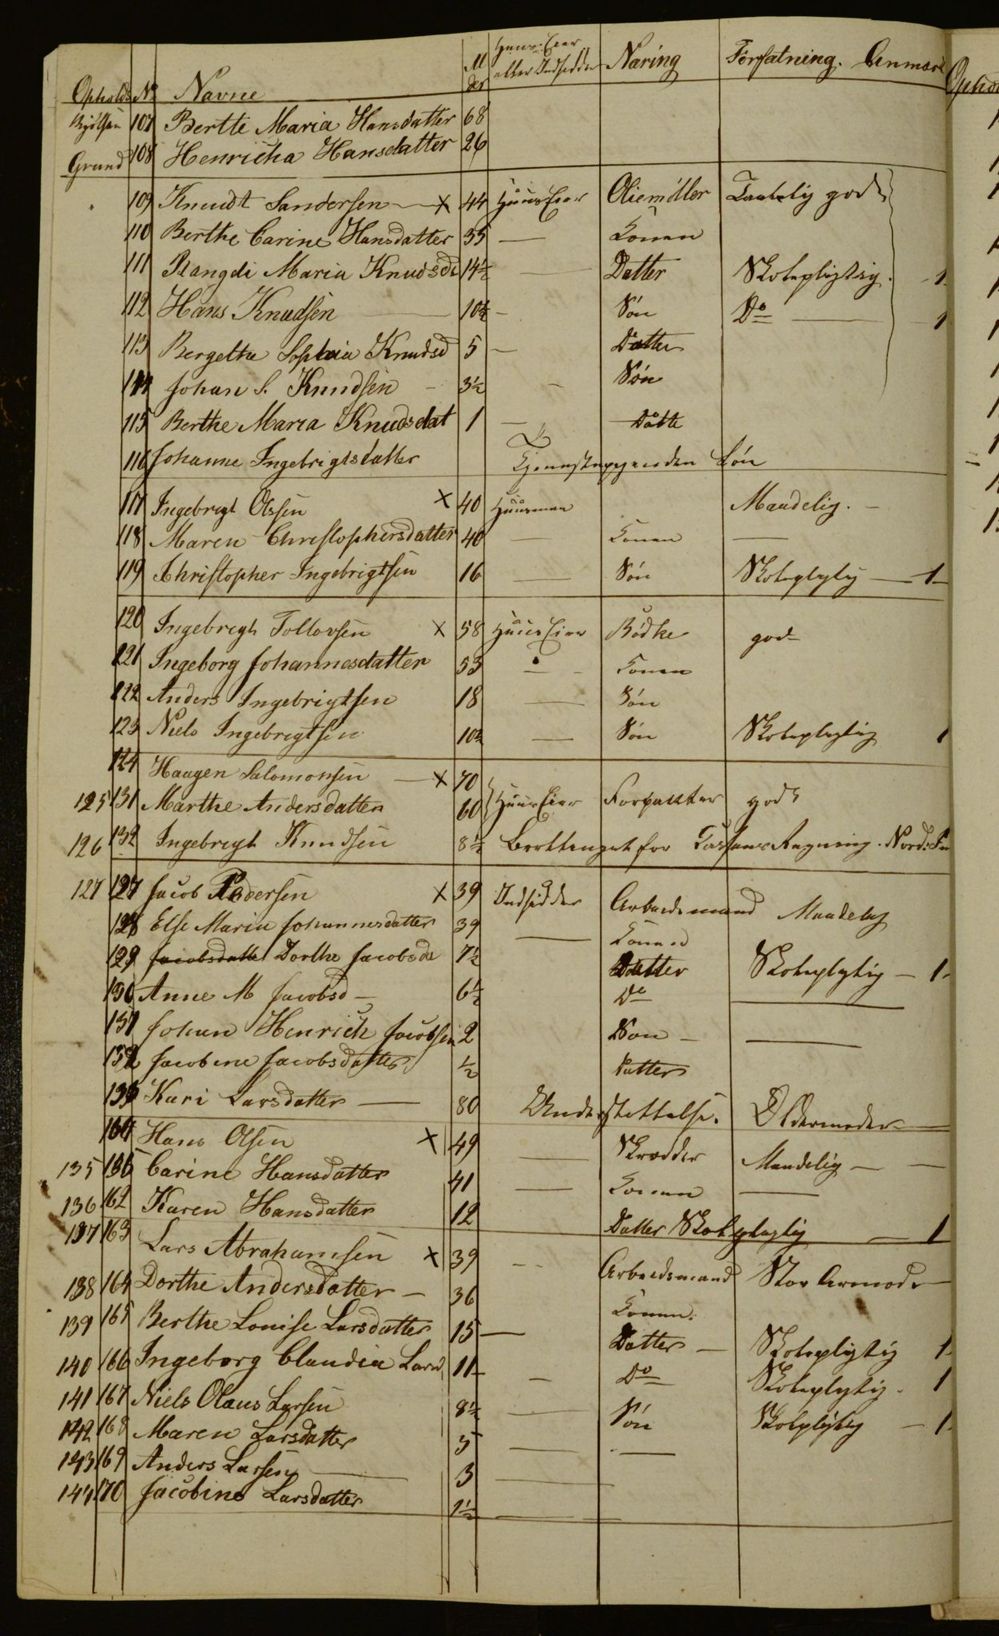 Opholds No Navne Alder Huus Eier eller Indsidder Næring Forfatning. Anmærk
107 Berthe Maria Hansdatter 68
Grund 108 Henricha Hansdatter 26
109 Knudt Sandersen X 44 Huus Eier Oliemöller Taalelig god
110 Berthe Carine Hansdatter 35 — Konen
111 Rangdi Maria Knudsdr 14½ — Datter Skolepligtig. 1
112 Hans Knudsen 10½ — Søn Do — 1
113 Bergetha Sophia Knudsd 5 — Datter
114 Johan S. Knudsen - 3½ - Søn
115 Berthe Maria Knudsdat 1 — Datte
116 Johanne Ingebrigtsdatter Tjenestepige uden Løn
117 Ingebrigt Olsen X 40 Huusmand Maadelig. -
118 Maren Christophersdatter 40 — Konen —
119 Christopher Ingebrigtsen 16 — Søn Skolepligtig — 1
120 Ingebrigt Tollovsen X 58 Huus Eier Bödker god
121 Ingeborg Johannesdatter 53 — Konen
122 Anders Ingebrigtsen 18 — Søn
123 Niels Ingebrigtsen 10½ — Søn Skolepligtig 1
124 Haagen Salomonsen — X 70
125 131 Marthe Andersdatter 60 Huus Eier Forpagter god
126 132 Ingebrigt Knudsen 8½ Bortsat for Kassens Regning.
127 127 Jacob Pedersen X 39 Indsidder Arbeidsmand Maadelig
128 Else Maria Johannesdatter 39 — Konen
129 Jacobsdatte Dorthe Jacobsda 7½ Datter Skolepligtig — 1
130 Anne M Jacobsd — 6½ Do —
131 Johan Henrich Jacobsen 2 Søn — —
132 Jacobine Jacobsdatter ½ Datter
133 Kari Larsdatter — 80 Understøttelse. Oldemoder
Hans Olsen X 49 — Skrædder Maadelig — —
135 Carine Hansdatter 41 — Konen —
136 162 Karen Hansdatter 12 Datter Skolepligtig — 1
137 163 Lars Abrahamsen X 39 - - Arbeidsmand Stor Armod
138 164 Dorthe Andersdatter — 36 Konen.
139 165 Berthe Louise Larsdatter 15 — Datter — Skolepligtig 1
140 166 Ingeborg Claudia Larsd 11 — Do Skolepligtig. 1
141 167 Niels Olaus Larsen 8½ — Søn Skolepligtig — 1
142 168 Maren Larsdatter 5 — —
143 169 Anders Larsen 3 —
144 170 Jacobine Larsdatter 1½ —